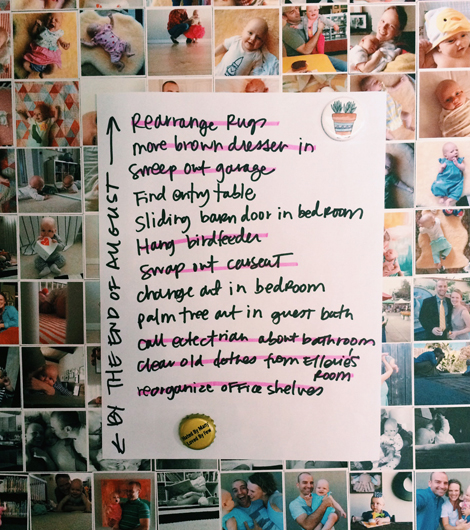 BY THE END OF AUGUST
Rearrange Rugs
move brown dresser in
Sweep out garage
Find entry table
Sliding baren door in bedroom
Hang birdfeeder
Swap out carseat
change art in bedroom
palm tree art in guest bath
call eclectrian about bathroom
clean old clothes from Ellerie's
Room
reorganize office shelves
Hated By Many
Loved By Few